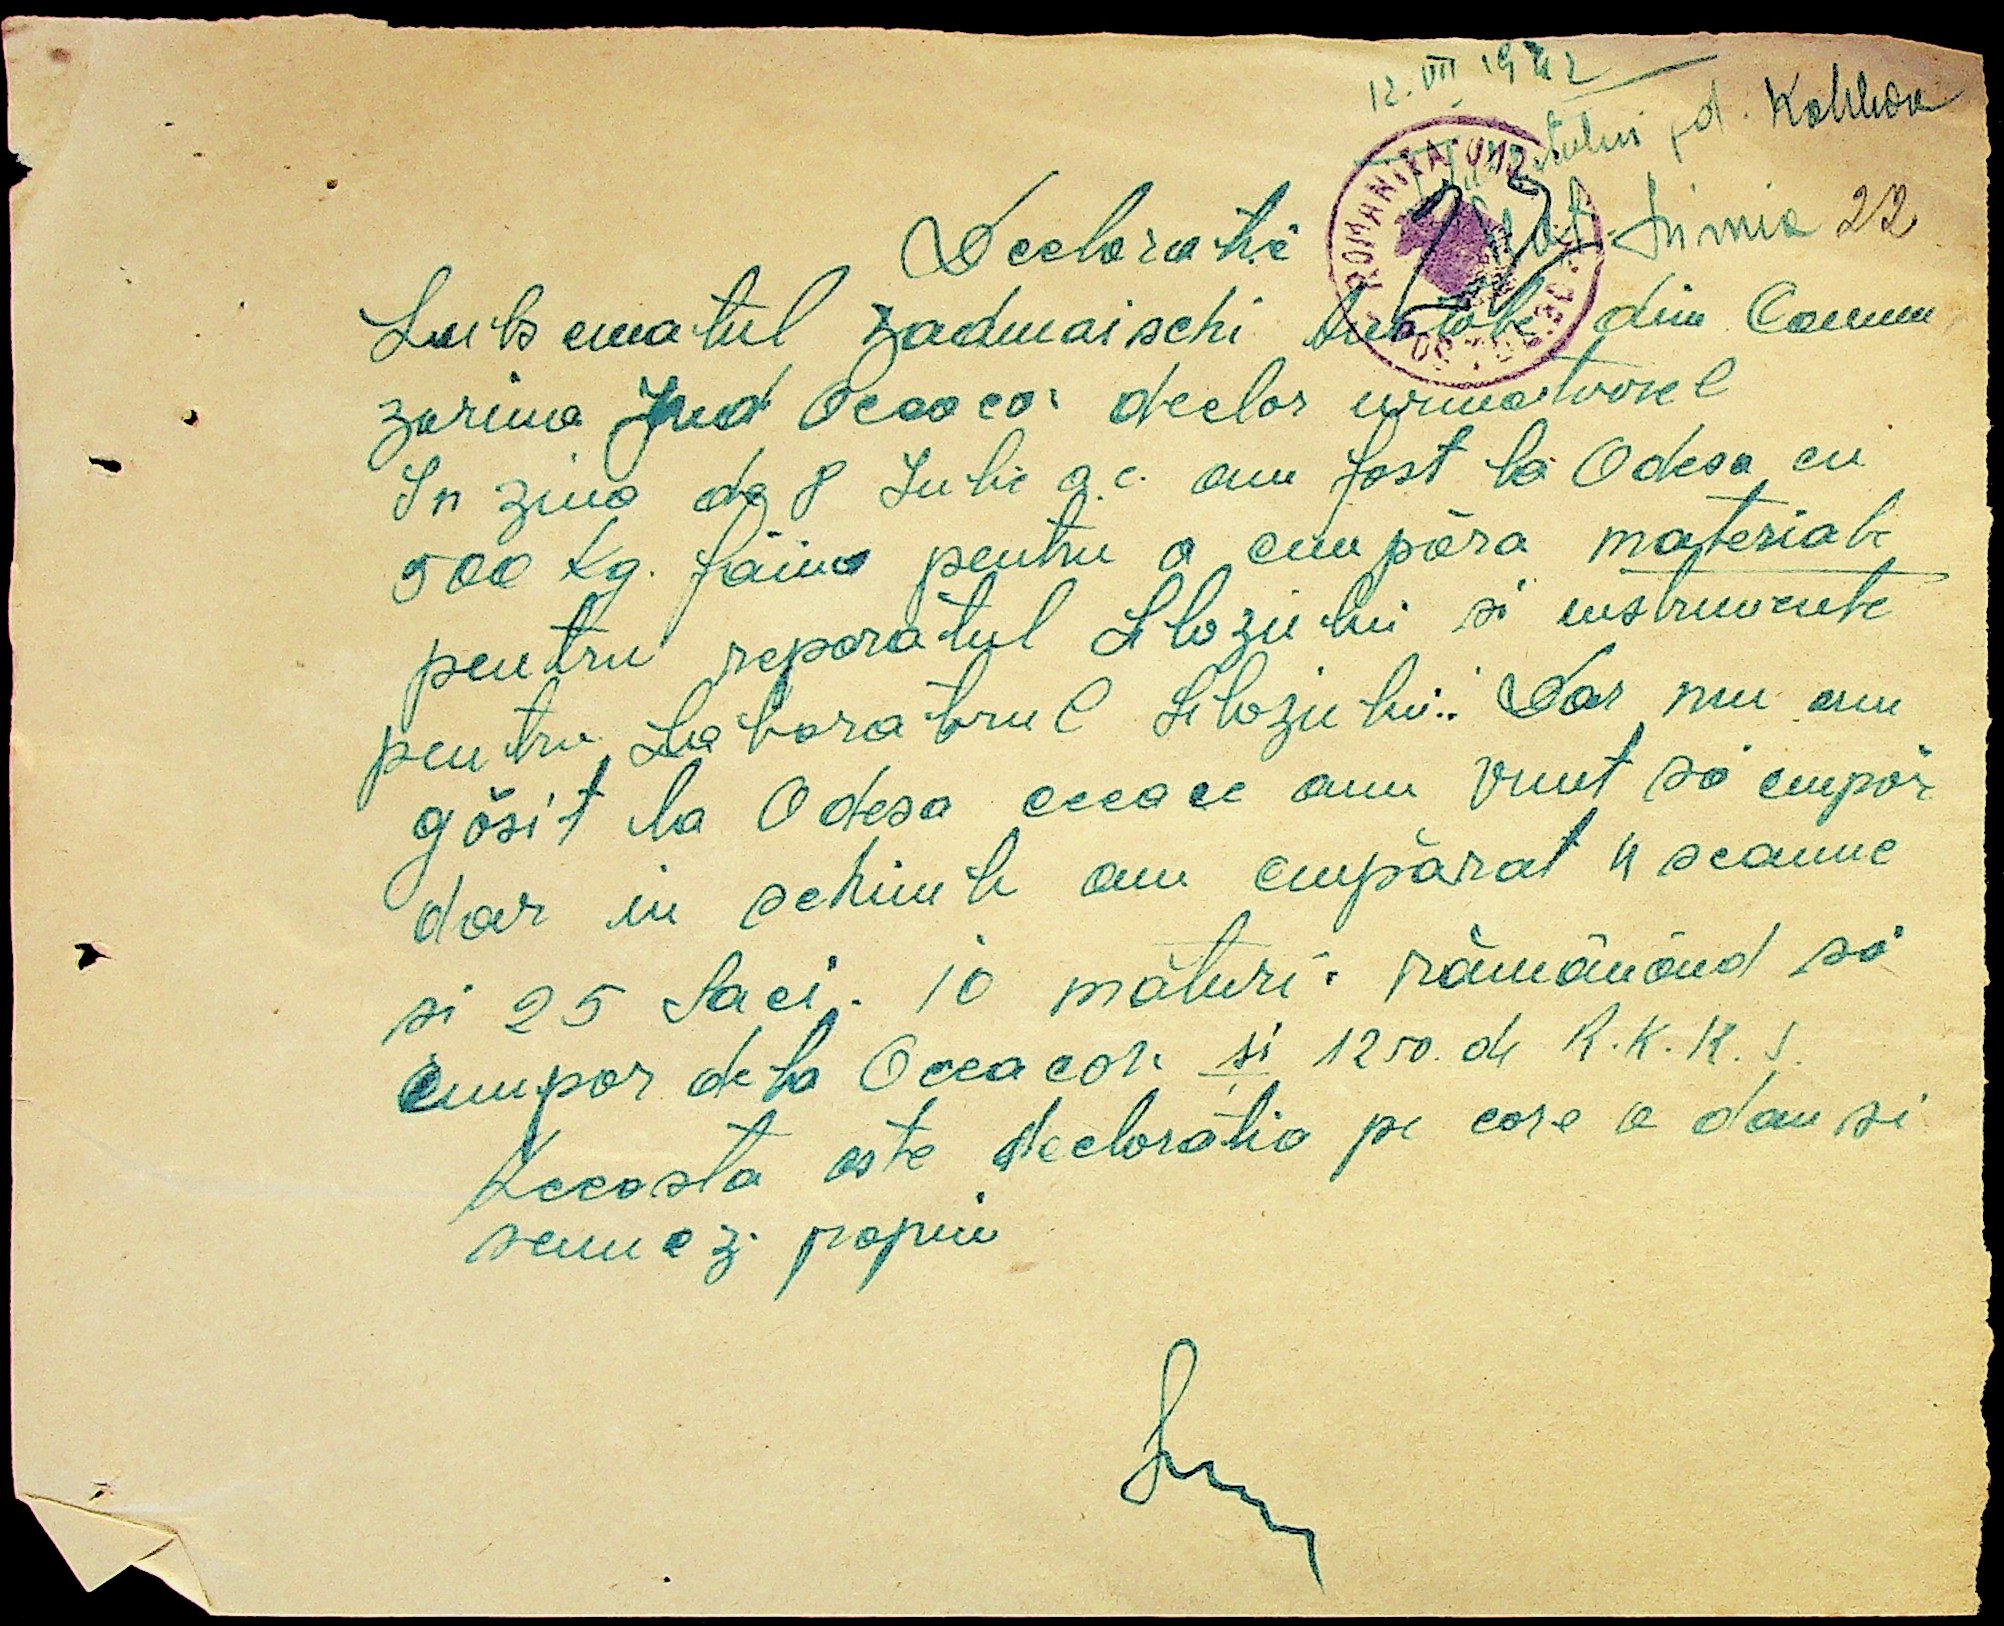 12.VII 1942
22
Declaratie
Subsematul Zadnaischi din Comun
zarina Jud Oceacov declar urmatorel
In zina de 8 Iulie a.c. am fost la Odesa cu
500 Kg. făina pentru a cumpăra materiale
pentru reparatul Silozului si instrumente
pentru Laboratorul Silozului. Dar nu am
găsit la Odesa ceeace am vrut să cumpăr
dar in schimb am cumpărat 4 scaune
si 25 Saci. 10 mături. rămânând să
cumpar dela Oceacov si 1250. de R.K.K.S.
Aceasta este declaratia pe care o dau si
semnez propriu